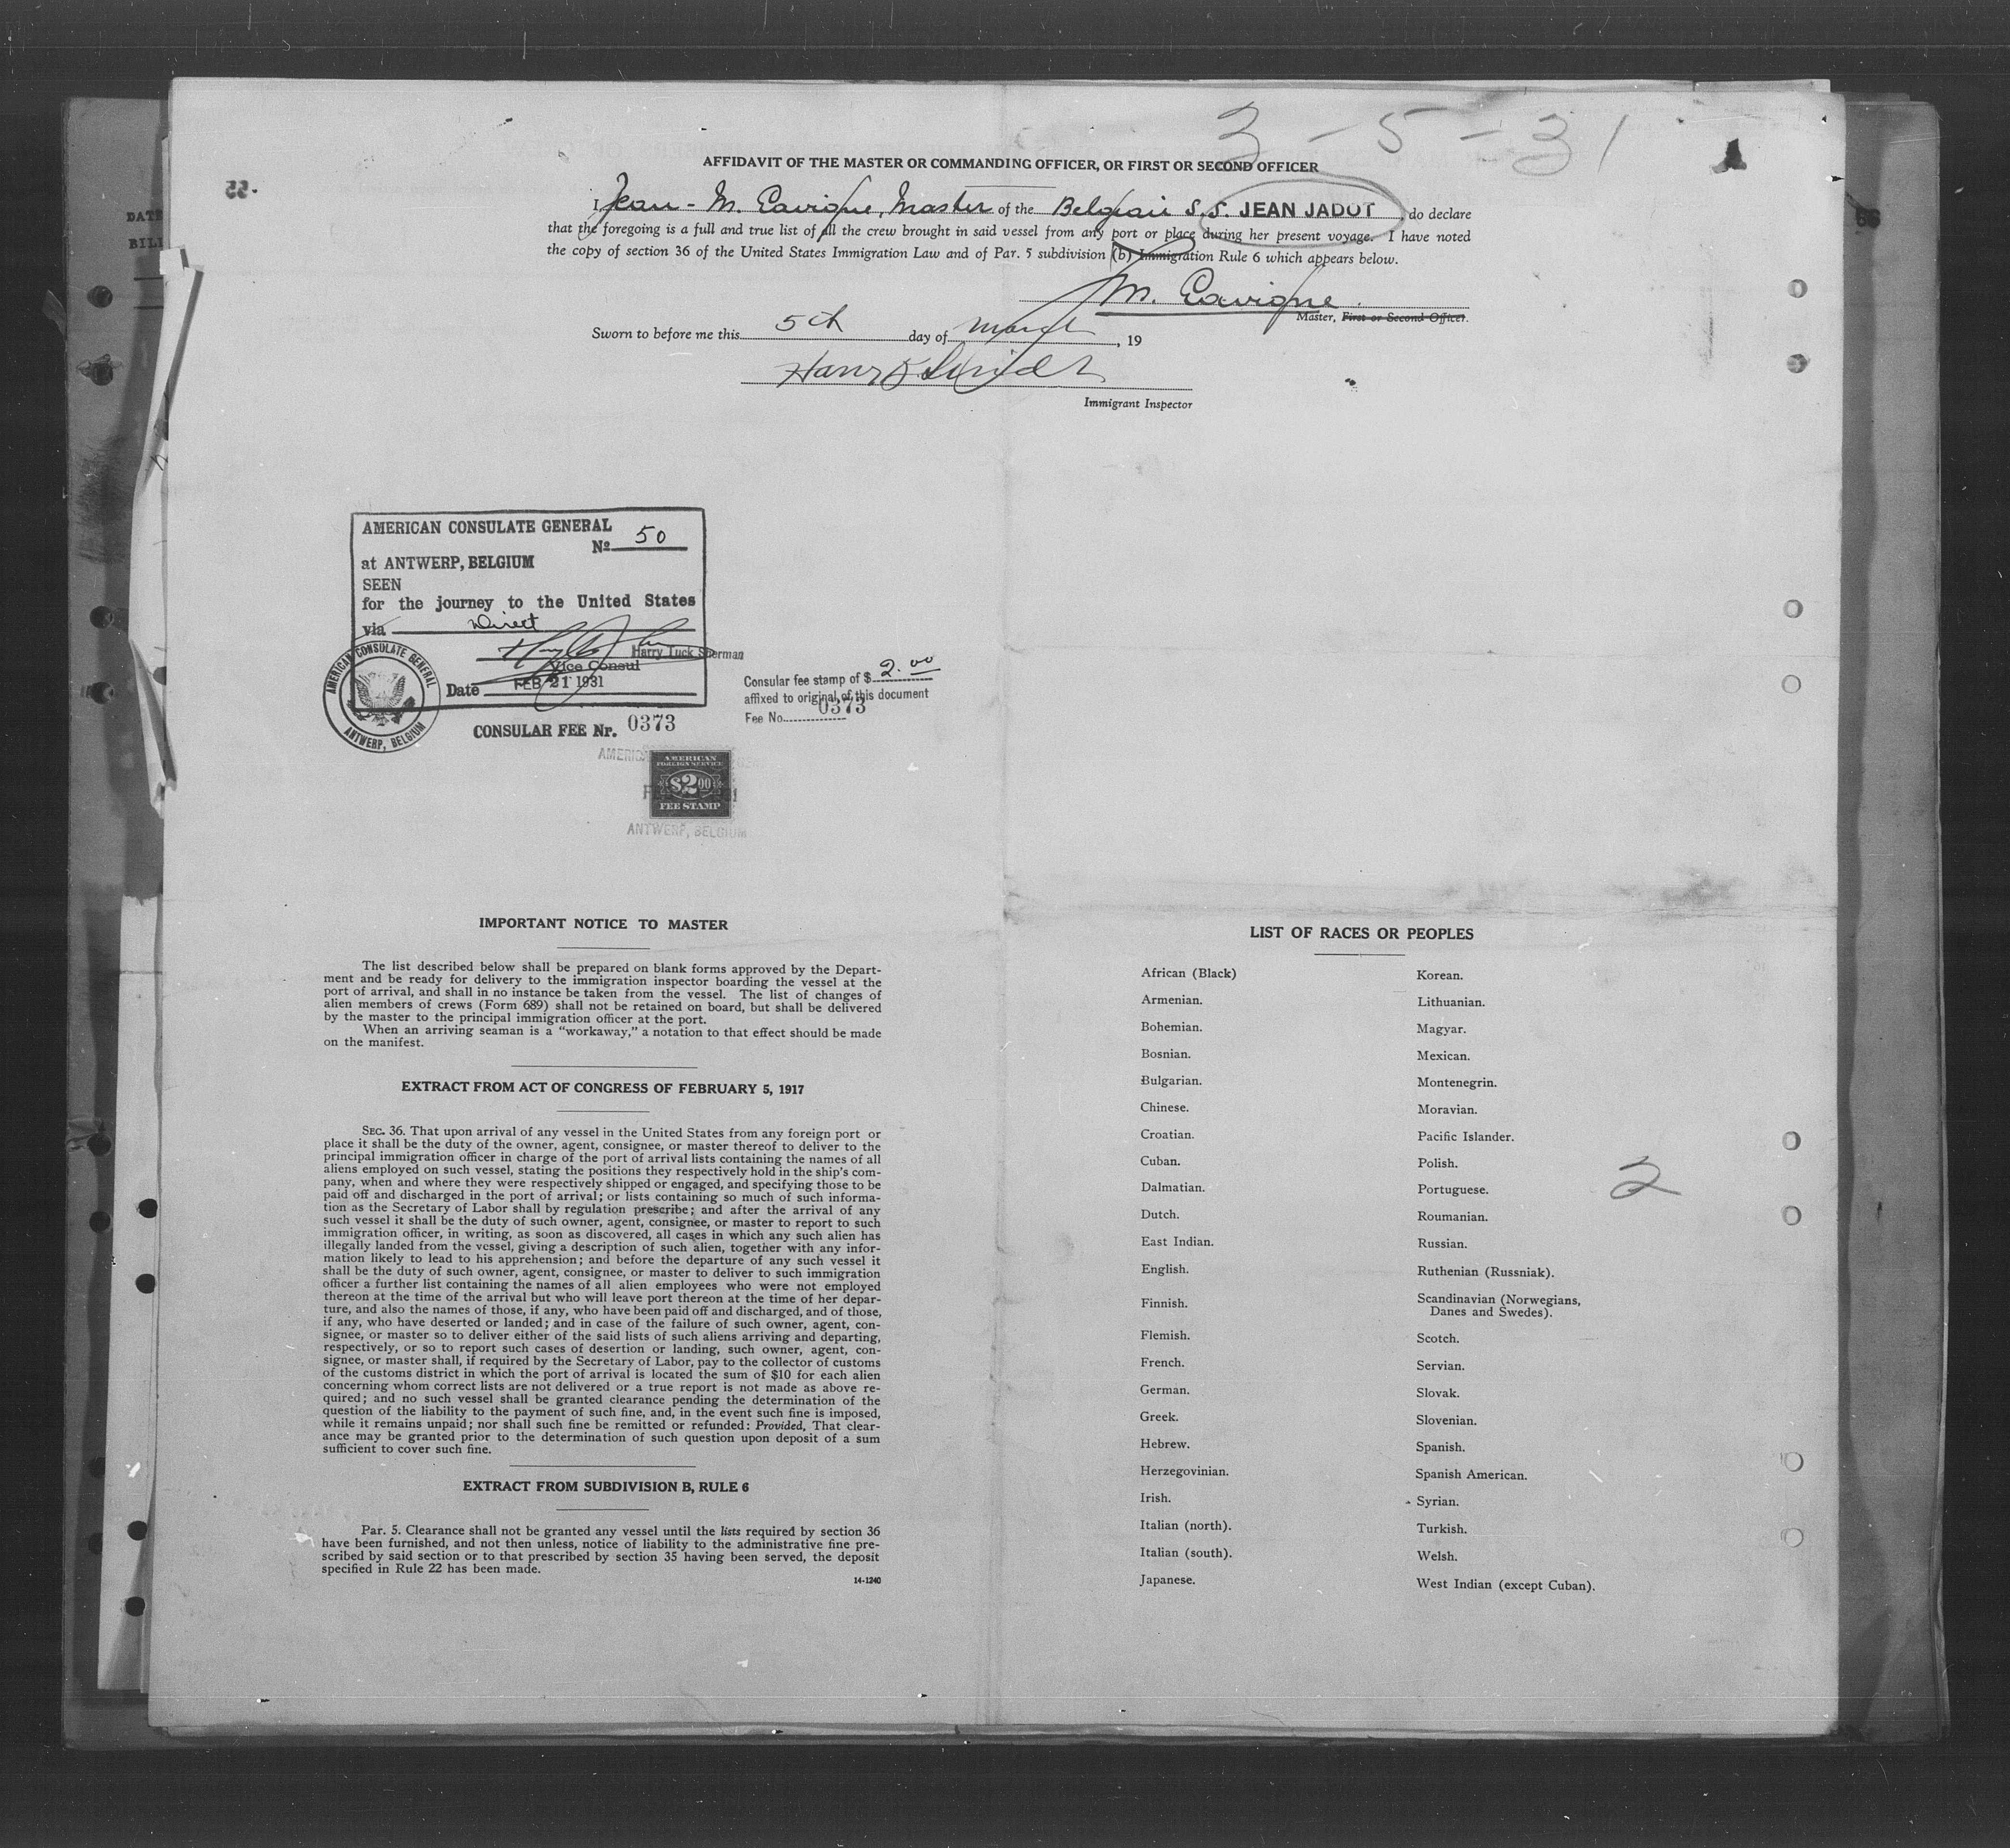 3 - 5 - 31
AFFIDAVIT OF THE MASTER OR COMMANDING OFFICER, OR FIRST OR SECOND OFFICER
55.
I, Jean - M. Lavigne, Master of the Belgian S.S. JEAN JADOT, do declare
that the foregoing is a full and true list of all the crew brought in said vessel from any port or place during her present voyage. I have noted
the copy of section 36 of the United States Immigration Law and of Par. 5 subdivision (b) Immigration Rule 6 which appears below.
M. Lavigne.
Master, First or Second Officer.
Sworn to before me this 5th day of March, 19
Immigrant Inspector
DATE
BILL
AMERICAN CONSULATE GENERAL
No 50
at ANTWERP, BELGIUM
SEEN
for the journey to the United States
via Direct
Harry Tuck Sherman
Vice Consul
Date FEB 21 1931
AMERICAN CONSULATE GENERAL
ANTWERP, BELGIUM
CONSULAR FEE Nr. 0373
Consular fee stamp of $ 2.00
affixed to original of this document
Fee No. 0373
AMERICAN
FOREIGN SERVICE
$2.00
FEE STAMP
ANTWERP, BELGIUM
IMPORTANT NOTICE TO MASTER
The list described below shall be prepared on blank forms approved by the Depart-
ment and be ready for delivery to the immigration inspector boarding the vessel at the
port of arrival, and shall in no instance be taken from the vessel. The list of changes of
alien members of crews (Form 689) shall not be retained on board, but shall be delivered
by the master to the principal immigration officer at the port.
When an arriving seaman is a "workaway," a notation to that effect should be made
on the manifest.
EXTRACT FROM ACT OF CONGRESS OF FEBRUARY 5, 1917
SEC. 36. That upon arrival of any vessel in the United States from any foreign port or
place it shall be the duty of the owner, agent, consignee, or master thereof to deliver to the
principal immigration officer in charge of the port of arrival lists containing the names of all
aliens employed on such vessel, stating the positions they respectively hold in the ship's com-
pany, when and where they were respectively shipped or engaged, and specifying those to be
paid off and discharged in the port of arrival; or lists containing so much of such informa-
tion as the Secretary of Labor shall by regulation prescribe; and after the arrival of any
such vessel it shall be the duty of such owner, agent, consignee, or master to report to such
immigration officer, in writing, as soon as discovered, all cases in which any such alien has
illegally landed from the vessel, giving a description of such alien, together with any infor-
mation likely to lead to his apprehension; and before the departure of any such vessel it
shall be the duty of such owner, agent, consignee, or master to deliver to such immigration
officer a further list containing the names of all alien employees who were not employed
thereon at the time of the arrival but who will leave port thereon at the time of her depar-
ture, and also the names of those, if any, who have been paid off and discharged, and of those,
if any, who have deserted or landed; and in case of the failure of such owner, agent, con-
signee, or master so to deliver either of the said lists of such aliens arriving and departing,
respectively, or so to report such cases of desertion or landing, such owner, agent, con-
signee, or master shall, if required by the Secretary of Labor, pay to the collector of customs
of the customs district in which the port of arrival is located the sum of $10 for each alien
concerning whom correct lists are not delivered or a true report is not made as above re-
quired; and no such vessel shall be granted clearance pending the determination of the
question of the liability to the payment of such fine, and, in the event such fine is imposed,
while it remains unpaid; nor shall such fine be remitted or refunded: Provided, That clear-
ance may be granted prior to the determination of such question upon deposit of a sum
sufficient to cover such fine.
EXTRACT FROM SUBDIVISION B, RULE 6
Par. 5. Clearance shall not be granted any vessel until the lists required by section 36
have been furnished, and not then unless, notice of liability to the administrative fine pre-
scribed by said section or to that prescribed by section 35 having been served, the deposit
specified in Rule 22 has been made.
14-1240
LIST OF RACES OR PEOPLES
African (Black)
Armenian.
Bohemian.
Bosnian.
Bulgarian.
Chinese.
Croatian.
Cuban.
Dalmatian.
Dutch.
East Indian.
English.
Finnish.
Flemish.
French.
German.
Greek.
Hebrew.
Herzegovinian.
Irish.
Italian (north).
Italian (south).
Japanese.
Korean.
Lithuanian.
Magyar.
Mexican.
Montenegrin.
Moravian.
Pacific Islander.
Polish.
Portuguese.
Roumanian.
Russian.
Ruthenian (Russniak).
Scandinavian (Norwegians,
Danes and Swedes).
Scotch.
Servian.
Slovak.
Slovenian.
Spanish.
Spanish American.
Syrian.
Turkish.
Welsh.
West Indian (except Cuban).
2